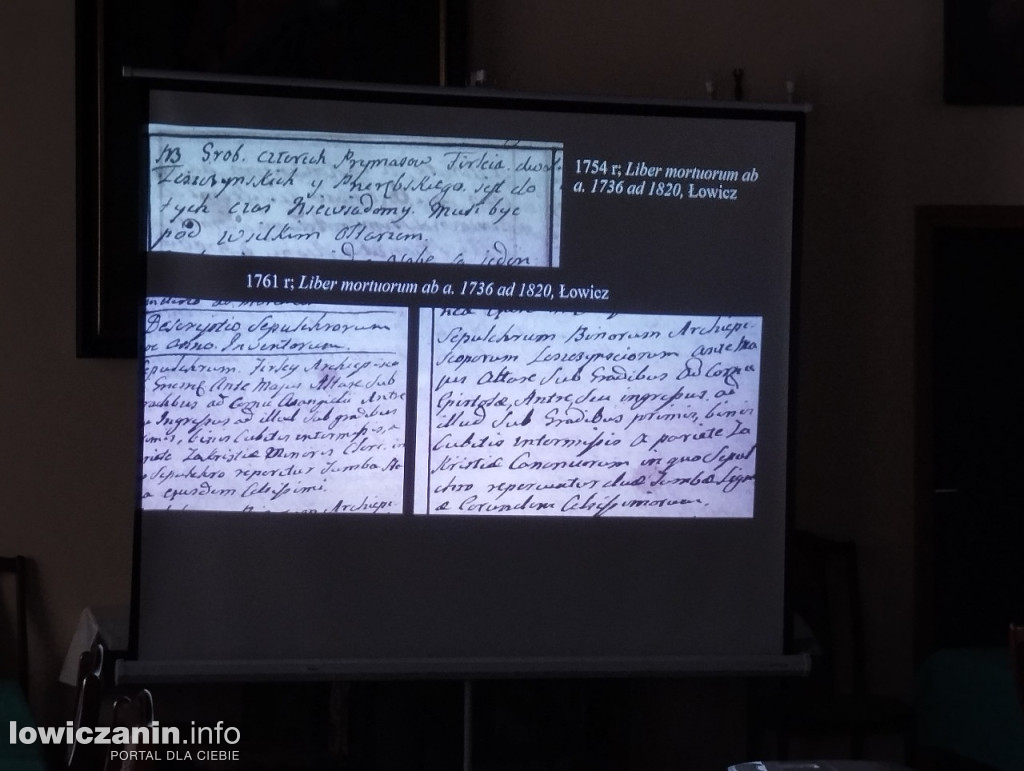 NB Grob. czterech Prymasow Firleia. dwoch
Leszczynskich y Prerębskiego. jest do
tych czas Niewiadomy. Musi byc
pod Wielkim Ołtarzem.
1754 r; Liber mortuorum ab
a. 1736 ad 1820, Łowicz
1761 r; Liber mortuorum ab a. 1736 ad 1820, Łowicz
Descriptio Sepulchrorum
Anno. Inventorum.
Sepulchrum. Firley Archiepi
Ante Majus Altare Sub
ad Cornu Evangelii Antre
Ingressus ad illud sub gradibus
binis Cubitis intermissis, a
Zakristiæ Minoris Cleri. in
Sepulchro reperitur Tumba
a ejusdem Celsissimi.
Archiepi.
Sepulchrum Binorum Archiepi-
scoporum Leszczynsciorum ante Ma
jus Altare Sub Gradibus ad Cornu
Epistolæ, Antre, seu ingressus, ad
illud Sub Gradibus primis, binis
Cubitis intermissis a pariete Za
kristiæ Canonicorum in quo Sepul
chro reperiuntur duæ Tumbæ Ligne
æ Eorundem Celsissimorum.
lowiczanin.info
PORTAL DLA CIEBIE